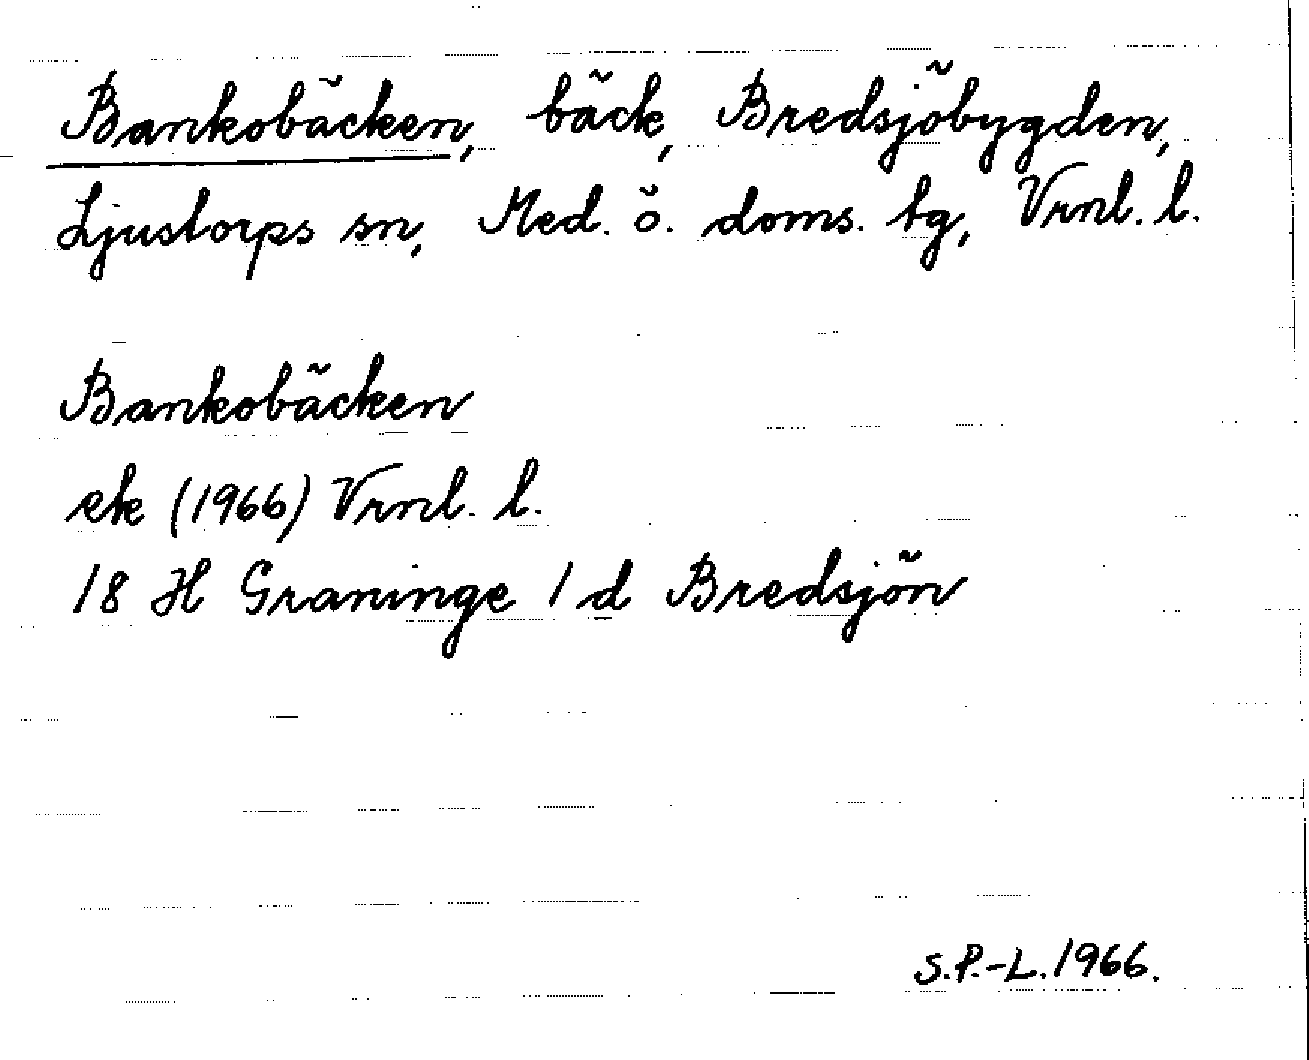 Bankobäcken, bäck, Bredsjöbygden,
Ljustorps sn, Med. ö. doms. tg, Vrnl. l.
Bankobäcken
ek (1966) Vrnl. l.
18 H Graninge 1 d Bredsjön
S.P.-L. 1966.